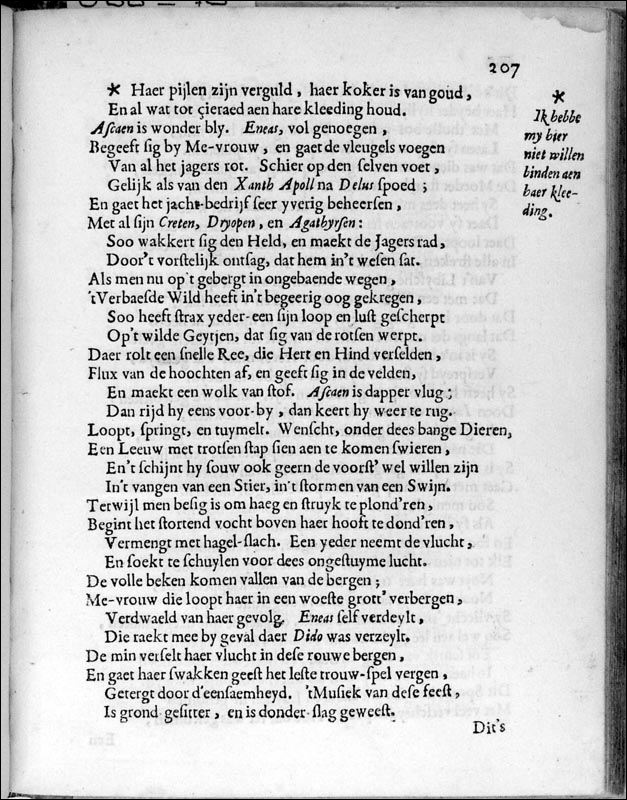 207
* Haer pijlen zijn verguld , haer koker is van goud,
En al wat tot çieraed aen hare kleeding houd.
Ascaen is wonder bly. Eneas, vol genoegen ,
Begeeft sig by Me-vrouw , en gaet de vleugels voegen
Van al het jagers rot. Schier op den selven voet ,
Gelijk als van den Xanth Apoll na Delus spoed ;
En gaet het jacht-bedrijf seer yverig beheersen ,
Met al sijn Creten, Dryopen , en Agathyrsen :
Soo wakkert sig den Held, en maekt de Jagers rad,
Door't vorstelijk ontsag, dat hem in't wesen sat.
Als men nu op 't gebergt in ongebaende wegen ,
'tVerbaesde Wild heeft in't begeerig oog gekregen ,
Soo heeft strax yeder-een sijn loop en lust gescherpt
Op't wilde Geytjen, dat sig van de rotsen werpt.
Daer rolt een snelle Ree, die Hert en Hind verselden ,
Flux van de hoochten af, en geeft sig in de velden,
En maekt een wolk van stof. Ascaen is dapper vlug ;
Dan rijd hy eens voor-by , dan keert hy weer te rug.
Loopt, springt, en tuymelt. Wenscht, onder dees bange Dieren,
Een Leeuw met trotsen stap sien aen te komen swieren ,
En't schijnt hy souw ook geern de voorst' wel willen zijn
In't vangen van een Stier, in't stormen van een Swijn.
Terwijl men besig is om haeg en struyk te plond'ren ,
Begint het stortend vocht boven haer hooft te dond'ren ,
Vermengt met hagel-slach. Een yeder neemt de vlucht ,
En soekt te schuylen voor dees ongestuyme lucht.
De volle beken komen vallen van de bergen ;
Me-vrouw die loopt haer in een woeste grott' verbergen ,
Verdwaeld van haer gevolg. Eneas self verdeylt ,
Die raekt mee by geval daer Dido was verzeylt.
De min verselt haer vlucht in dese rouwe bergen ,
En gaet haer swakken geest het leste trouw-spel vergen ,
Getergt door d'eensaemheyd. 'tMusiek van dese feest ,
Is grond-gesitter , en is donder-slag geweest.
Dit's
*
Ik hebbe
my hier
niet willen
binden aen
haer klee-
ding.